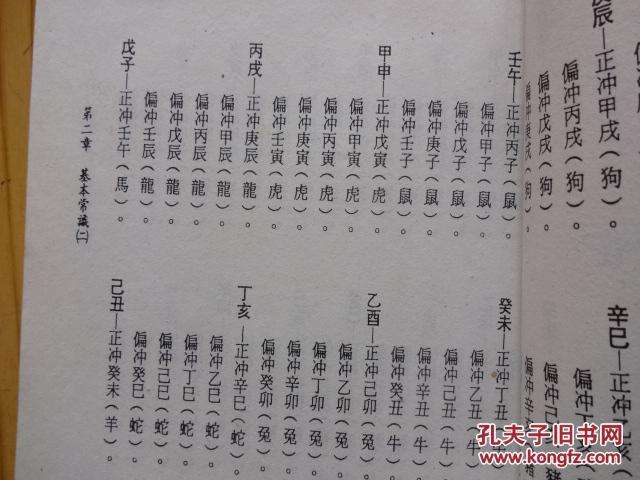 辰—正冲甲戌（狗）。
偏冲丙戌（狗）。
偏冲戊戌（狗）。
偏冲庚戌（狗）。
辛巳—正冲
偏冲
偏冲己
偏冲辛
壬午—正冲丙子（鼠）。
偏冲甲子（鼠）。
偏冲戊子（鼠）。
偏冲庚子（鼠）。
偏冲壬子（鼠）。
甲申—正冲戊寅（虎）。
偏冲甲寅（虎）。
偏冲丙寅（虎）。
偏冲庚寅（虎）。
偏冲壬寅（虎）。
丙戌—正冲庚辰（龍）。
偏冲甲辰（龍）。
偏冲丙辰（龍）。
偏冲戊辰（龍）。
偏冲壬辰（龍）。
戊子—正冲壬午（馬）。
癸未—正冲丁丑
偏冲乙丑（牛）
偏冲己丑（牛）
偏冲辛丑（牛）
偏冲癸丑（牛）
乙酉—正冲己卯（兔）
偏冲乙卯（兔）
偏冲丁卯（兔）
偏冲辛卯（兔）
偏冲癸卯（兔）
丁亥—正冲辛巳（蛇）
偏冲乙巳（蛇）
偏冲丁巳（蛇）
偏冲己巳（蛇）
偏冲癸巳（蛇）
己丑—正冲癸未（羊）
第二章 基本常識(二)
孔夫子旧书网
www.kongfz.com